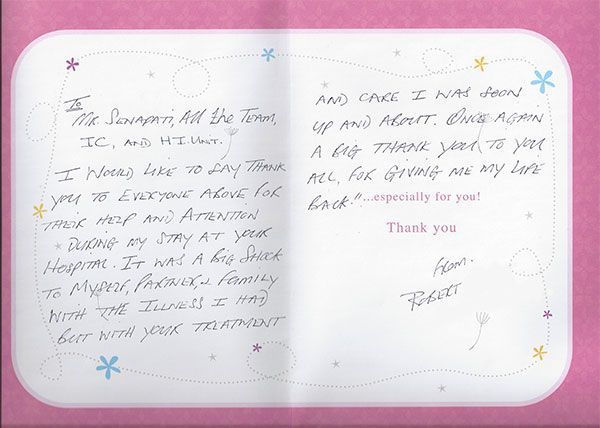 To
Mr. Senapati, All the Team,
IC, and H.I. Unit.
I would like to say thank
you to everyone above for
their help and attention
during my stay at your
hospital. It was a big shock
to myself, partner, & family
with the illness I had
but with your treatment
and care I was soon
up and about. Once again
a big thank you to you
all, for giving me my life
back"
...especially for you!
Thank you
From.
Robert